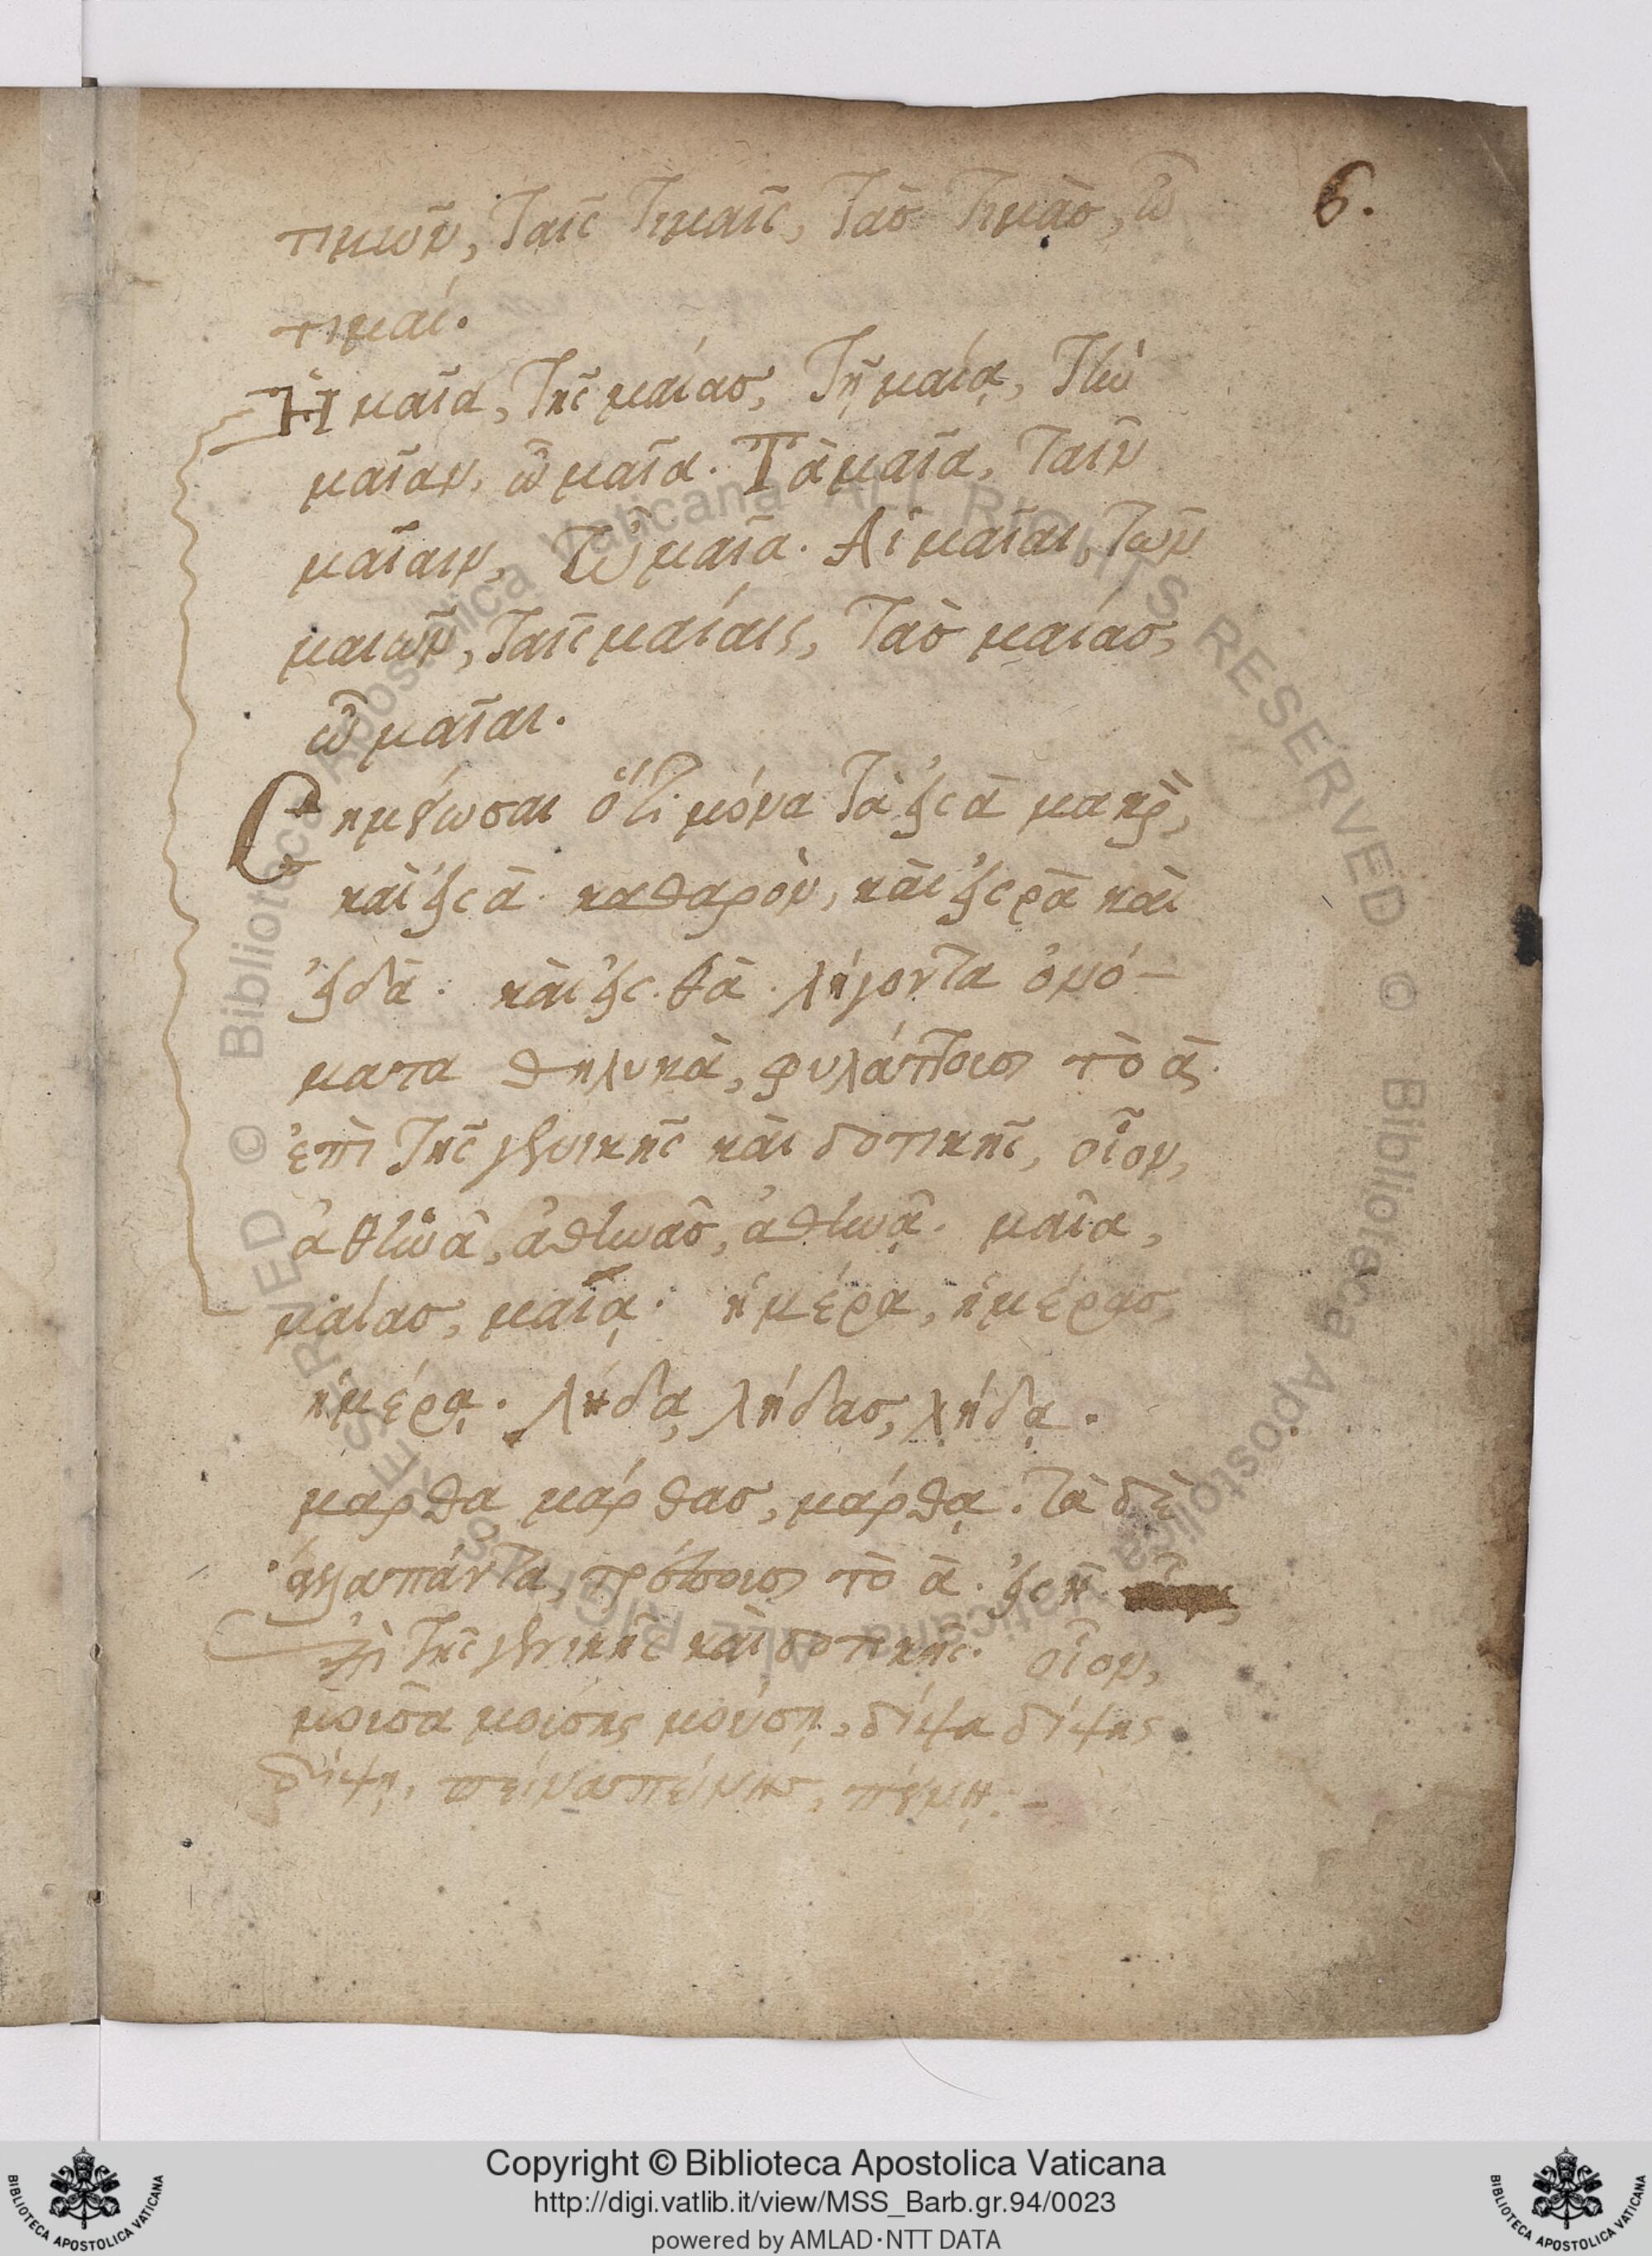 6.
τιμῶν, ταῖς τιμαῖς, τὰσ τιμὰσ, ὦ
τιμαί.
Ἡ μαῖα, τῆς μαίασ, τῇ μαίᾳ, τὴν
μαῖαν, ὦ μαῖα. Τὰ μαῖα, ταῖν
μαῖαιν, ὦ μαῖα. Αἱ μαῖαι, τῶν
μαιῶν, ταῖς μαίαις, τὰσ μαίασ,
ὦ μαῖαι.
Σημείωσαι ὅτι μόνα τὰ εἰς ᾱ μακρὸν,
καὶ εἰς ᾱ καθαρὸν, καὶ εἰς ρᾱ καὶ
εἰς δᾱ. καὶ εἰς θᾱ. λήγοντα ὀνό-
ματα θηλυκὰ, φυλάττουσι τὸ ᾱ
ἐπὶ τῆς γενικῆς καὶ δοτικῆς, οἷον,
ἀθηνᾶ, ἀθηνᾶσ, ἀθηνᾷ. μαῖα,
μαίασ, μαῖᾳ. ἡμέρα, ἡμέρασ,
ἡμέρᾳ. λήδα, λήδασ, λήδᾳ.
μαρθα μάρθασ, μάρθᾳ. τὰ δὲ
ἄλλα πάντα, τρέπουσι τὸ ᾱ. εἰς η̄
ἐπὶ τῆς γενικῆς καὶ δοτικῆς. οἷον,
μοῦσα μούσης μούσῃ, δίψα δίψης
δίψῃ, πεῖνα πείνησ, πείνῃ. -
Copyright © Biblioteca Apostolica Vaticana
http://digi.vatlib.it/view/MSS_Barb.gr.94/0023
powered by AMLAD·NTT DATA
BIBLIOTECA APOSTOLICA VATICANA
BIBLIOTECA APOSTOLICA VATICANA
© Biblioteca Apostolica Vaticana ALL RIGHTS RESERVED © Biblioteca Apostolica Vaticana ALL RIGHTS RESERVED